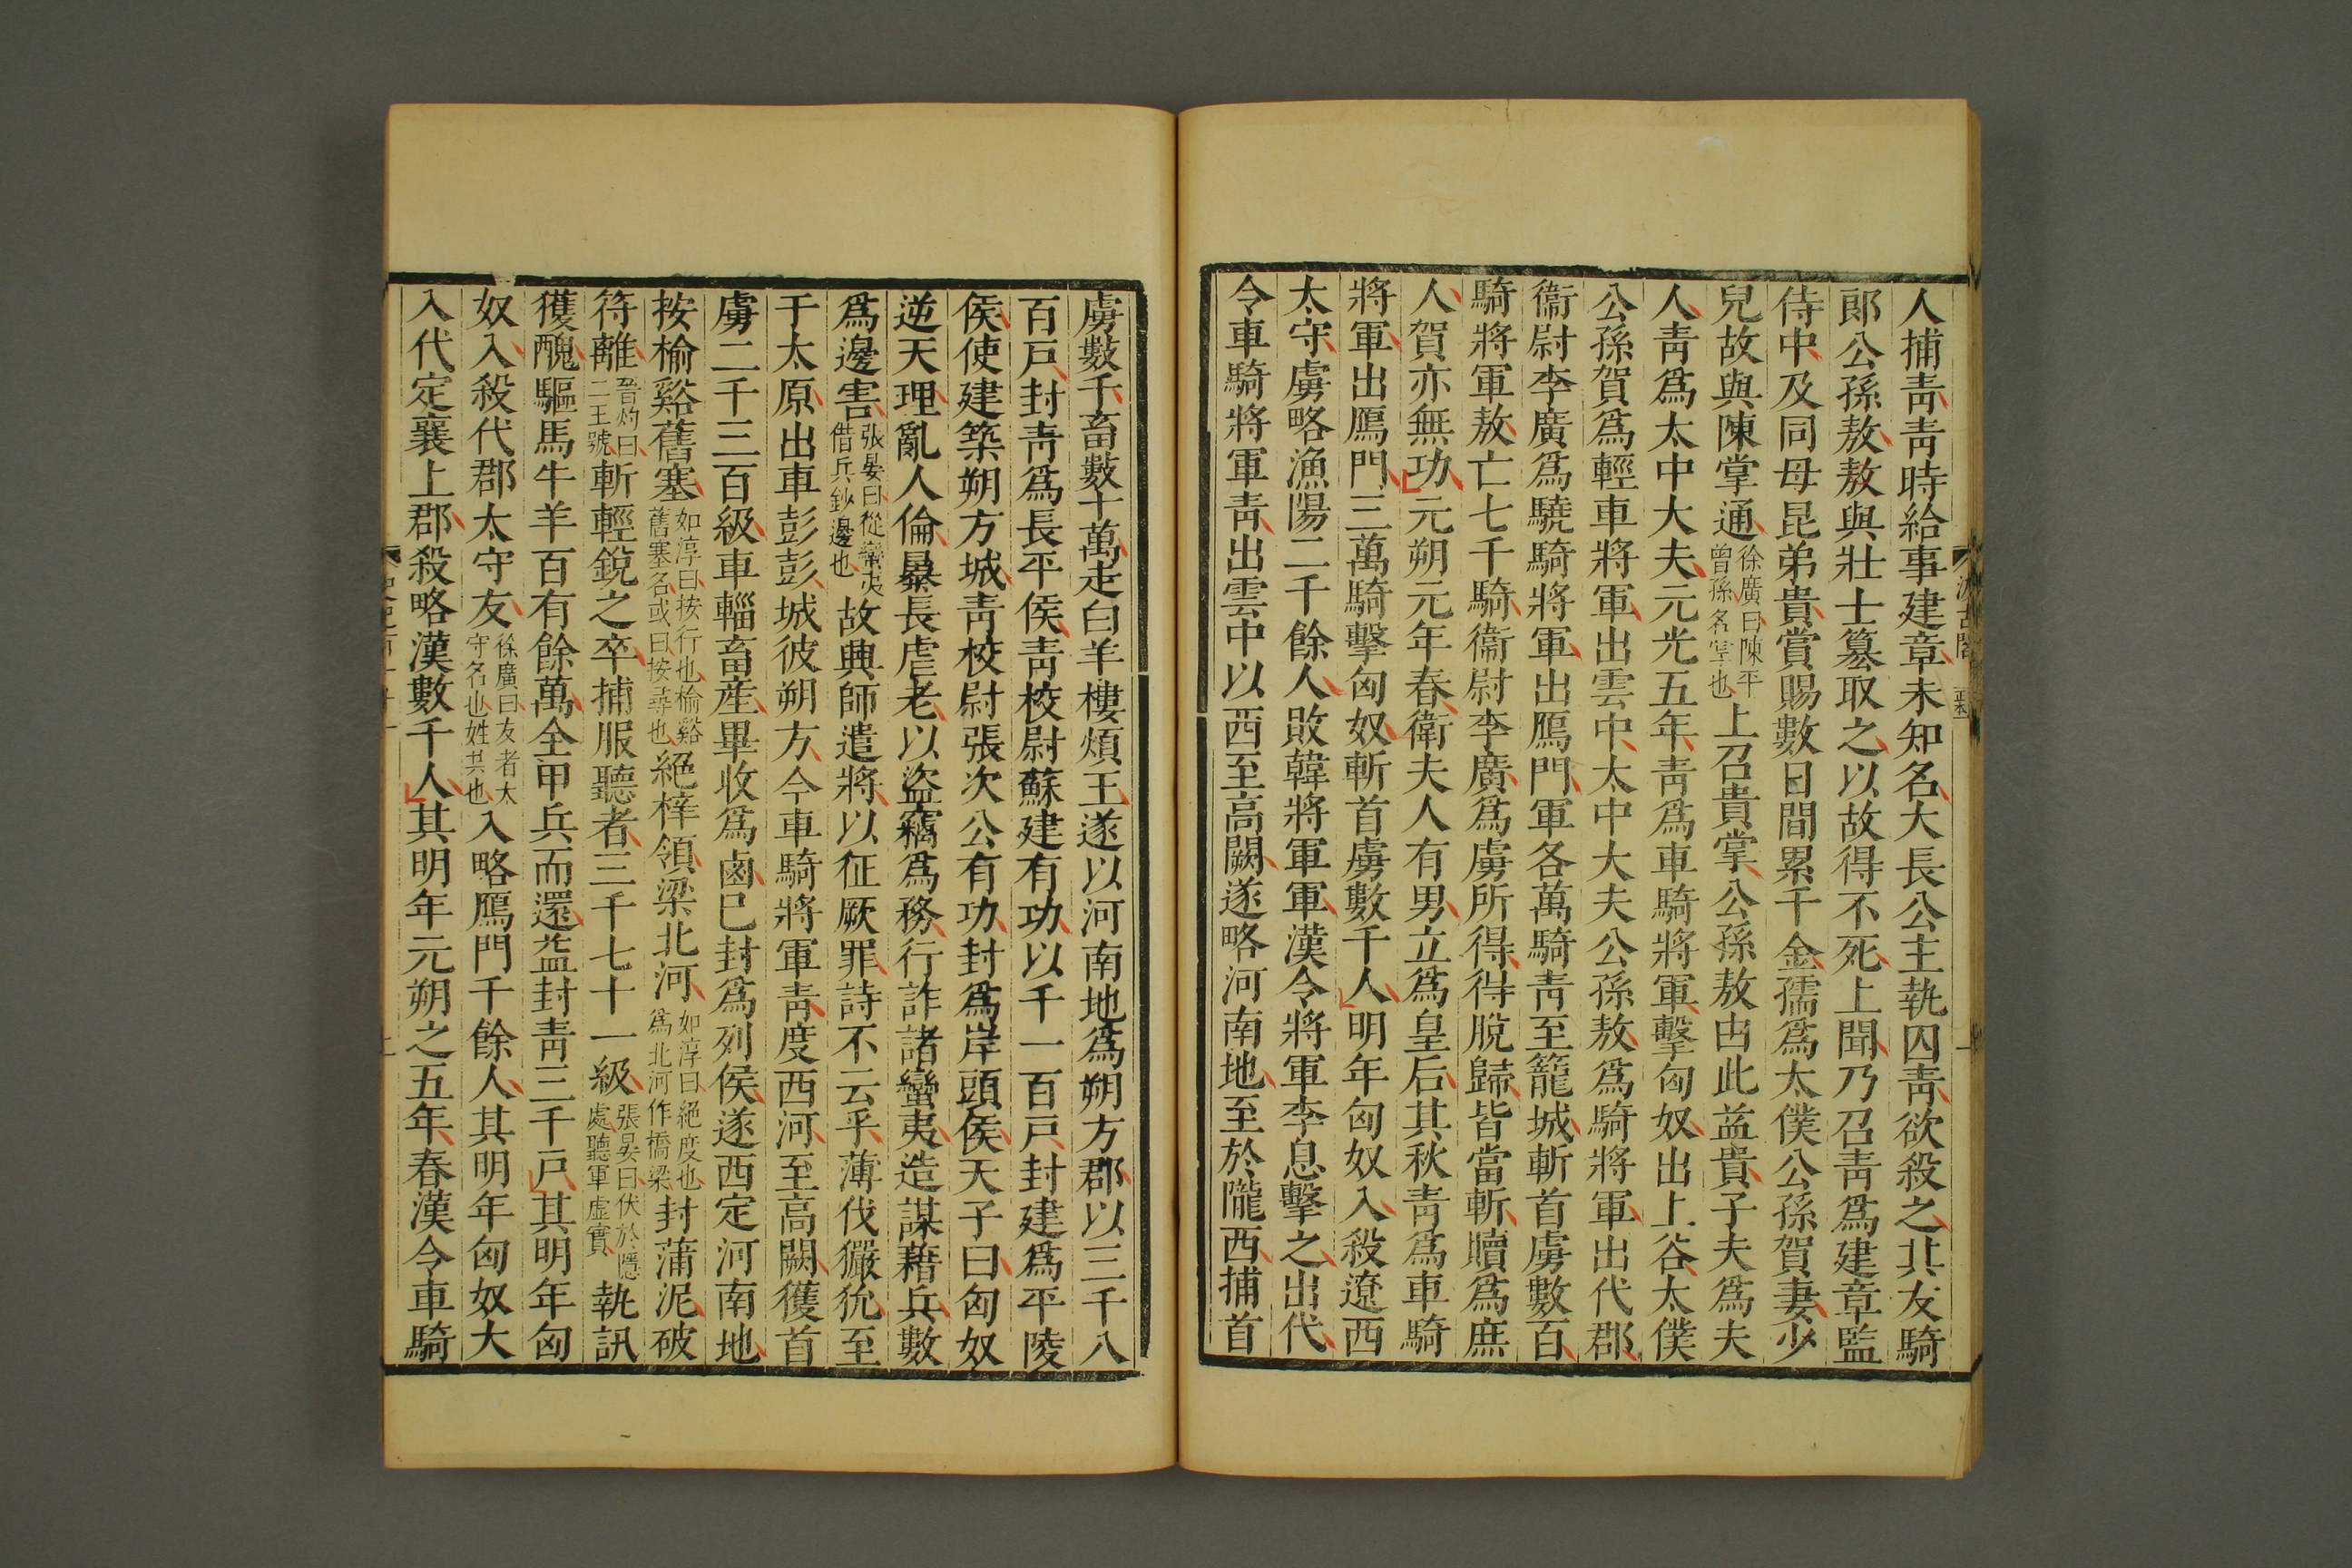 人捕靑靑時給事建章未知名大長公主執囚靑欲殺之其友騎
郞公孫敖敖與壯士篡取之以故得不死上聞乃召靑爲建章監
侍中及同母昆弟貴賞賜數日間累千金孺爲太僕公孫賀妻少
兒故與陳掌通徐廣曰陳平曾孫名掌也上召貴掌公孫敖由此益貴子夫爲夫
人靑爲太中大夫元光五年靑爲車騎將軍擊匈奴出上谷太僕
公孫賀爲輕車將軍出雲中太中大夫公孫敖爲騎將軍出代郡
衞尉李廣爲驍騎將軍出鴈門軍各萬騎靑至籠城斬首虜數百
騎將軍敖亡七千騎衞尉李廣爲虜所得得脫歸皆當斬贖爲庶
人賀亦無功元朔元年春衞夫人有男立爲皇后其秋靑爲車騎
將軍出鴈門三萬騎擊匈奴斬首虜數千人明年匈奴入殺遼西
太守虜略漁陽二千餘人敗韓將軍軍漢令將軍李息擊之出代
令車騎將軍靑出雲中以西至高闕遂略河南地至於隴西捕首
虜數千畜數十萬走白羊樓煩王遂以河南地爲朔方郡以三千八
百戸封靑爲長平侯靑校尉蘇建有功以千一百戸封建爲平陵
侯使建築朔方城靑校尉張次公有功封爲岸頭侯天子曰匈奴
逆天理亂人倫暴長虐老以盜竊爲務行詐諸蠻夷造謀藉兵數
爲邊害張晏曰從蠻夷借兵鈔邊也故興師遣將以征厥罪詩不云乎薄伐玁狁至
于太原出車彭彭城彼朔方今車騎將軍靑度西河至高闕獲首
虜二千三百級車輜畜產畢收爲鹵已封爲列侯遂西定河南地
按榆谿舊塞如淳曰按行也榆谿舊塞名或曰按尋也絕梓領梁北河如淳曰絕度也爲北河作橋梁封蒲泥破
符離晉灼曰二王號斬輕銳之卒捕服聽者三千七十一級張晏曰伏於隱處聽軍虛實執訊
獲醜驅馬牛羊百有餘萬全甲兵而還益封靑三千戸其明年匈
奴入殺代郡太守友徐廣曰友者太守名也姓共也入略鴈門千餘人其明年匈奴大
入代定襄上郡殺略漢數千人其明年元朔之五年春漢令車騎